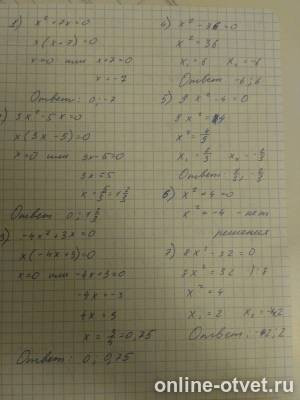 1) x² + 7x = 0
x(x+7) = 0
x=0 или x+7=0
x = -7
Ответ: 0; -7
) 3x² - 5x = 0
x(3x - 5) = 0
x=0 или 3x-5=0
3x = 5
Ответ: 0;
3) -4x² + 3x = 0
x(-4x+3)=0
x=0 или -4x+3=0
-4x = -3
4x = 3
x = 3/4 = 0,75
Ответ: 0; 0,75
4) x² - 36 = 0
x² = 36
x₁ = 6 x₂ = -6
Ответ -6; 6
5) 9x² - 4 = 0
x² = 4/9
Ответ
6) x² + 4 = 0
x² = -4 - нет
решения
7) 8x² - 32 = 0
8x² = 32 |:8
x² = 4
x₁ = 2 x₂ = -2
Ответ: -2; 2
online-otvet.ru